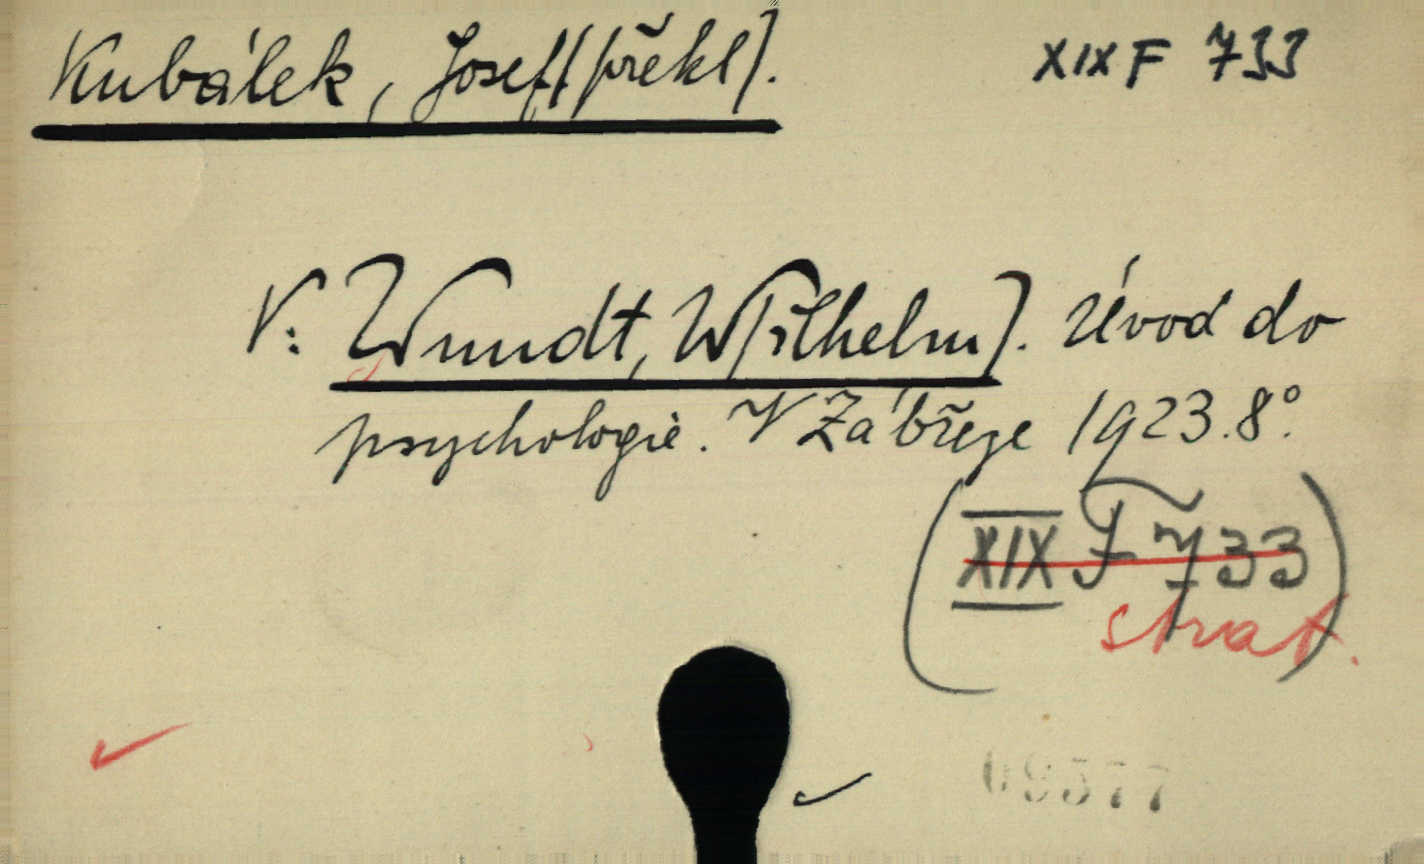 Kubálek, Josef (překl). XIX F 733
V: Wundt, W[ilhelm]. Úvod do
psychologie. V Zábřeze 1923. 8°.
(XIX F 733)
strat.
09377